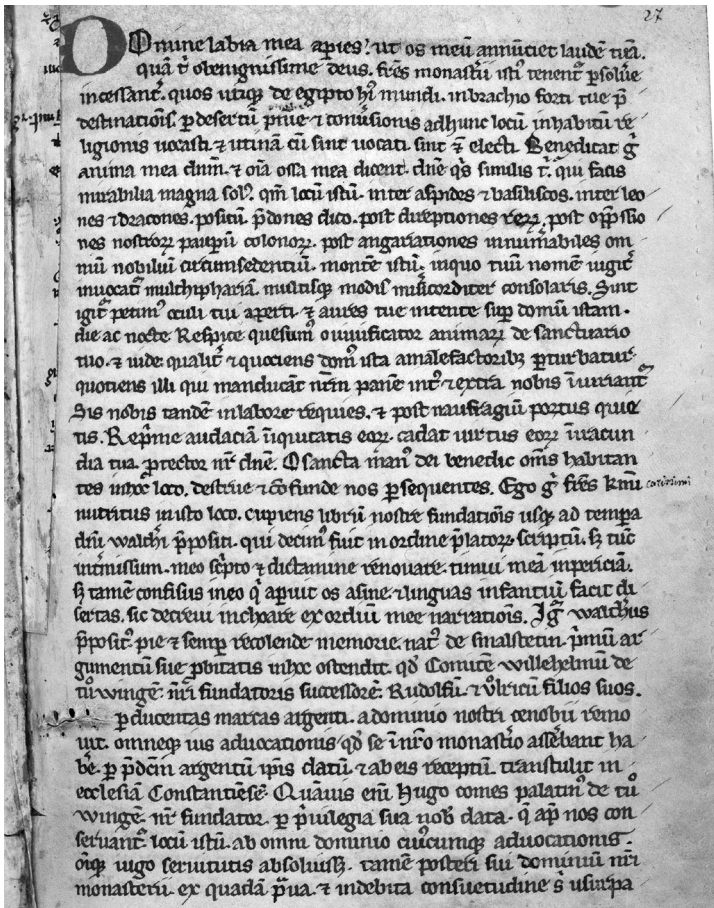 27
Domine labia mea aperies! ut os meū annūtiet laudē tuā.
quā t̄ o benignissime deus. fr̄es monast̄ii isti' tenent' ꝑsolu̅e
incessant̄. quos utiqꝫ de egipto hui' mundi. in brachio forti tue p̄
destinatiōis. ꝑ desertū pn̄ie ⁊ con̄usionis ad hunc locū in habitū re
ligionis uocasti. ⁊ utinā cū sint uocati. sint ⁊ electi. Benedicat g̊
anima mea dn̄m. ⁊ oīa ossa mea dicent. dn̄e q's similis t'. qui facis
mirabilia magna sol'. qm̄ locū istū. inter aspides ⁊ basiliscos. inter leo
nes ⁊ dracones. positū. p̄dones dico. post direptiones reꝝ. post opp̄ssio
nes nostroꝝ pauꝑū colonoꝝ. post angariationes innum̄abiles om
niū nobiliū circumsedentiū. montē istū. in quo tuū nomē iugit̄
inuocat' multiphariā. multisqꝫ modis mis̄icorditer consolaris. Sint
igit' petim' oculi tui aperti. ⁊ aures tue intente suꝑ domū istam.
die ac nocte. Respice quesum' o uiuificator animaꝝ de sanctuario
tuo. ⁊ uide. qualit̄ ⁊ quociens dom' ista a malefactoribꝫ ꝑturbatur.
quotiens illi qui manducāt nr̄m panē int' ⁊ extra nobis īiuriant'
Sis nobis tandē in labore requies. ⁊ post naufragiū portus quie
tis. Rep̄me audaciā īiquitatis eoꝝ. cadat uirtus eoꝝ ī iracun
dia tua. ꝓtector nr̄ dn̄e. O sancta man' dei benedic om̄s habitan
tes in hoc loco. destrue ⁊ cōfunde nos ꝑsequentes. Ego g̊ fr̄es km̄i carissimi
nutritus in isto loco. cupiens librū nostre fundatiōis usqꝫ ad tempora
dn̄i walth̄i p̄positi. qui decim' fuit in ordine p̄latoꝝ. scriptū. sꝫ tūc
int̄missum. meo sc̄pto ⁊ dictamine renouare. timui meā inpericiā.
sꝫ tamē confisus in eo q̄ aperuit os asine. ⁊ linguas infantiū facit di
sertas. sic decreui inchoare exordiū mee narratiōis. Ig̊ walth̄us
p̄posit' pie ⁊ semꝑ recolende memorie. nat' de smalstetin. p̄mū ar
gumentū sue ꝓbitatis in hoc ostendit. qd̄ Comitē willehelmū de
tůwinge. nr̄i fundatoris successorē. Rudolfū. ⁊ ůlricū filios suos.
ꝑ ducentas marcas argenti. a dominio nostri cenobii remo
uit. omneqꝫ ius aduocationis qd̄ se ī nr̄o monast̄io ass̄ebant ha
b̄e. ꝑ p̄dc̄m argentū ip̄is datū. ⁊ ab eis receptū. transtulit in
ecclesiā Constantiēsē. Quāuis enī Hugo comes palatin' de tů
winge. nr̄ fundator. ꝑ p̄uilegia sua nob̄ data. q̄ ap̄ nos con
seruant'. locū istū. ab omni dominio cui'cumqꝫ aduocationis.
oīqꝫ iugo seruitutis absoluisꝫ. tamē posteri sui dominiū nr̄i
monasterii. ex quadā p̄ua. ⁊ indebita consuetudine s' usurpa